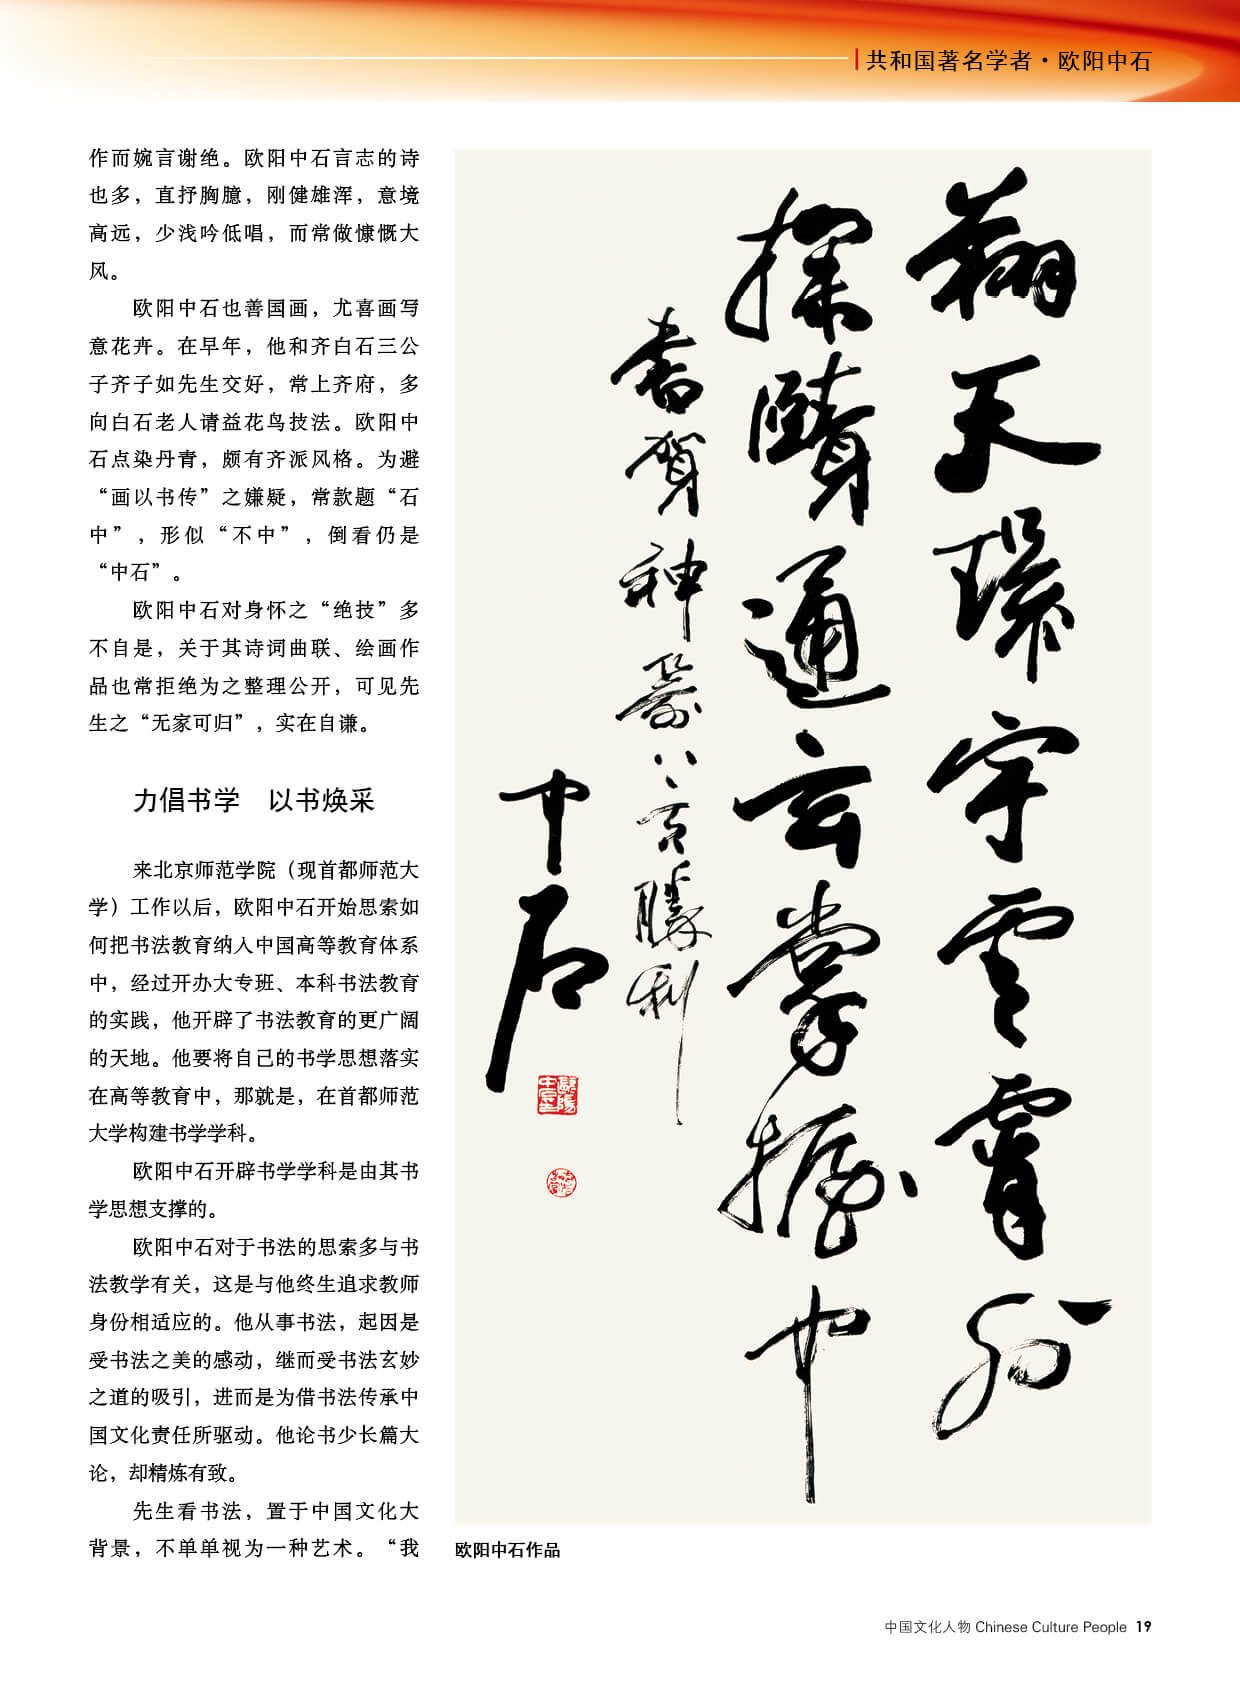 共和国著名学者·欧阳中石
作而婉言谢绝。欧阳中石言志的诗
也多，直抒胸臆，刚健雄浑，意境
高远，少浅吟低唱，而常做慷慨大
风。
欧阳中石也善国画，尤喜画写
意花卉。在早年，他和齐白石三公
子齐子如先生交好，常上齐府，多
向白石老人请益花鸟技法。欧阳中
石点染丹青，颇有齐派风格。为避
“画以书传”之嫌疑，常款题“石
中”，形似“不中”，倒看仍是
“中石”。
欧阳中石对身怀之“绝技”多
不自是，关于其诗词曲联、绘画作
品也常拒绝为之整理公开，可见先
生之“无家可归”，实在自谦。
力倡书学　以书焕采
来北京师范学院（现首都师范大
学）工作以后，欧阳中石开始思索如
何把书法教育纳入中国高等教育体系
中，经过开办大专班、本科书法教育
的实践，他开辟了书法教育的更广阔
的天地。他要将自己的书学思想落实
在高等教育中，那就是，在首都师范
大学构建书学学科。
欧阳中石开辟书学学科是由其书
学思想支撑的。
欧阳中石对于书法的思索多与书
法教学有关，这是与他终生追求教师
身份相适应的。他从事书法，起因是
受书法之美的感动，继而受书法玄妙
之道的吸引，进而是为借书法传承中
国文化责任所驱动。他论书少长篇大
论，却精炼有致。
先生看书法，置于中国文化大
背景，不单单视为一种艺术。“我
翔天环宇云霄外
探赜通玄掌握中
書賀神箭八言勝利
中石
欧阳中石作品
中国文化人物 Chinese Culture People 19